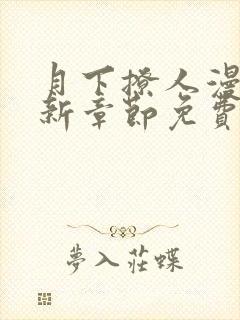 月下撩人漫
新章節免費
夢入莊蝶